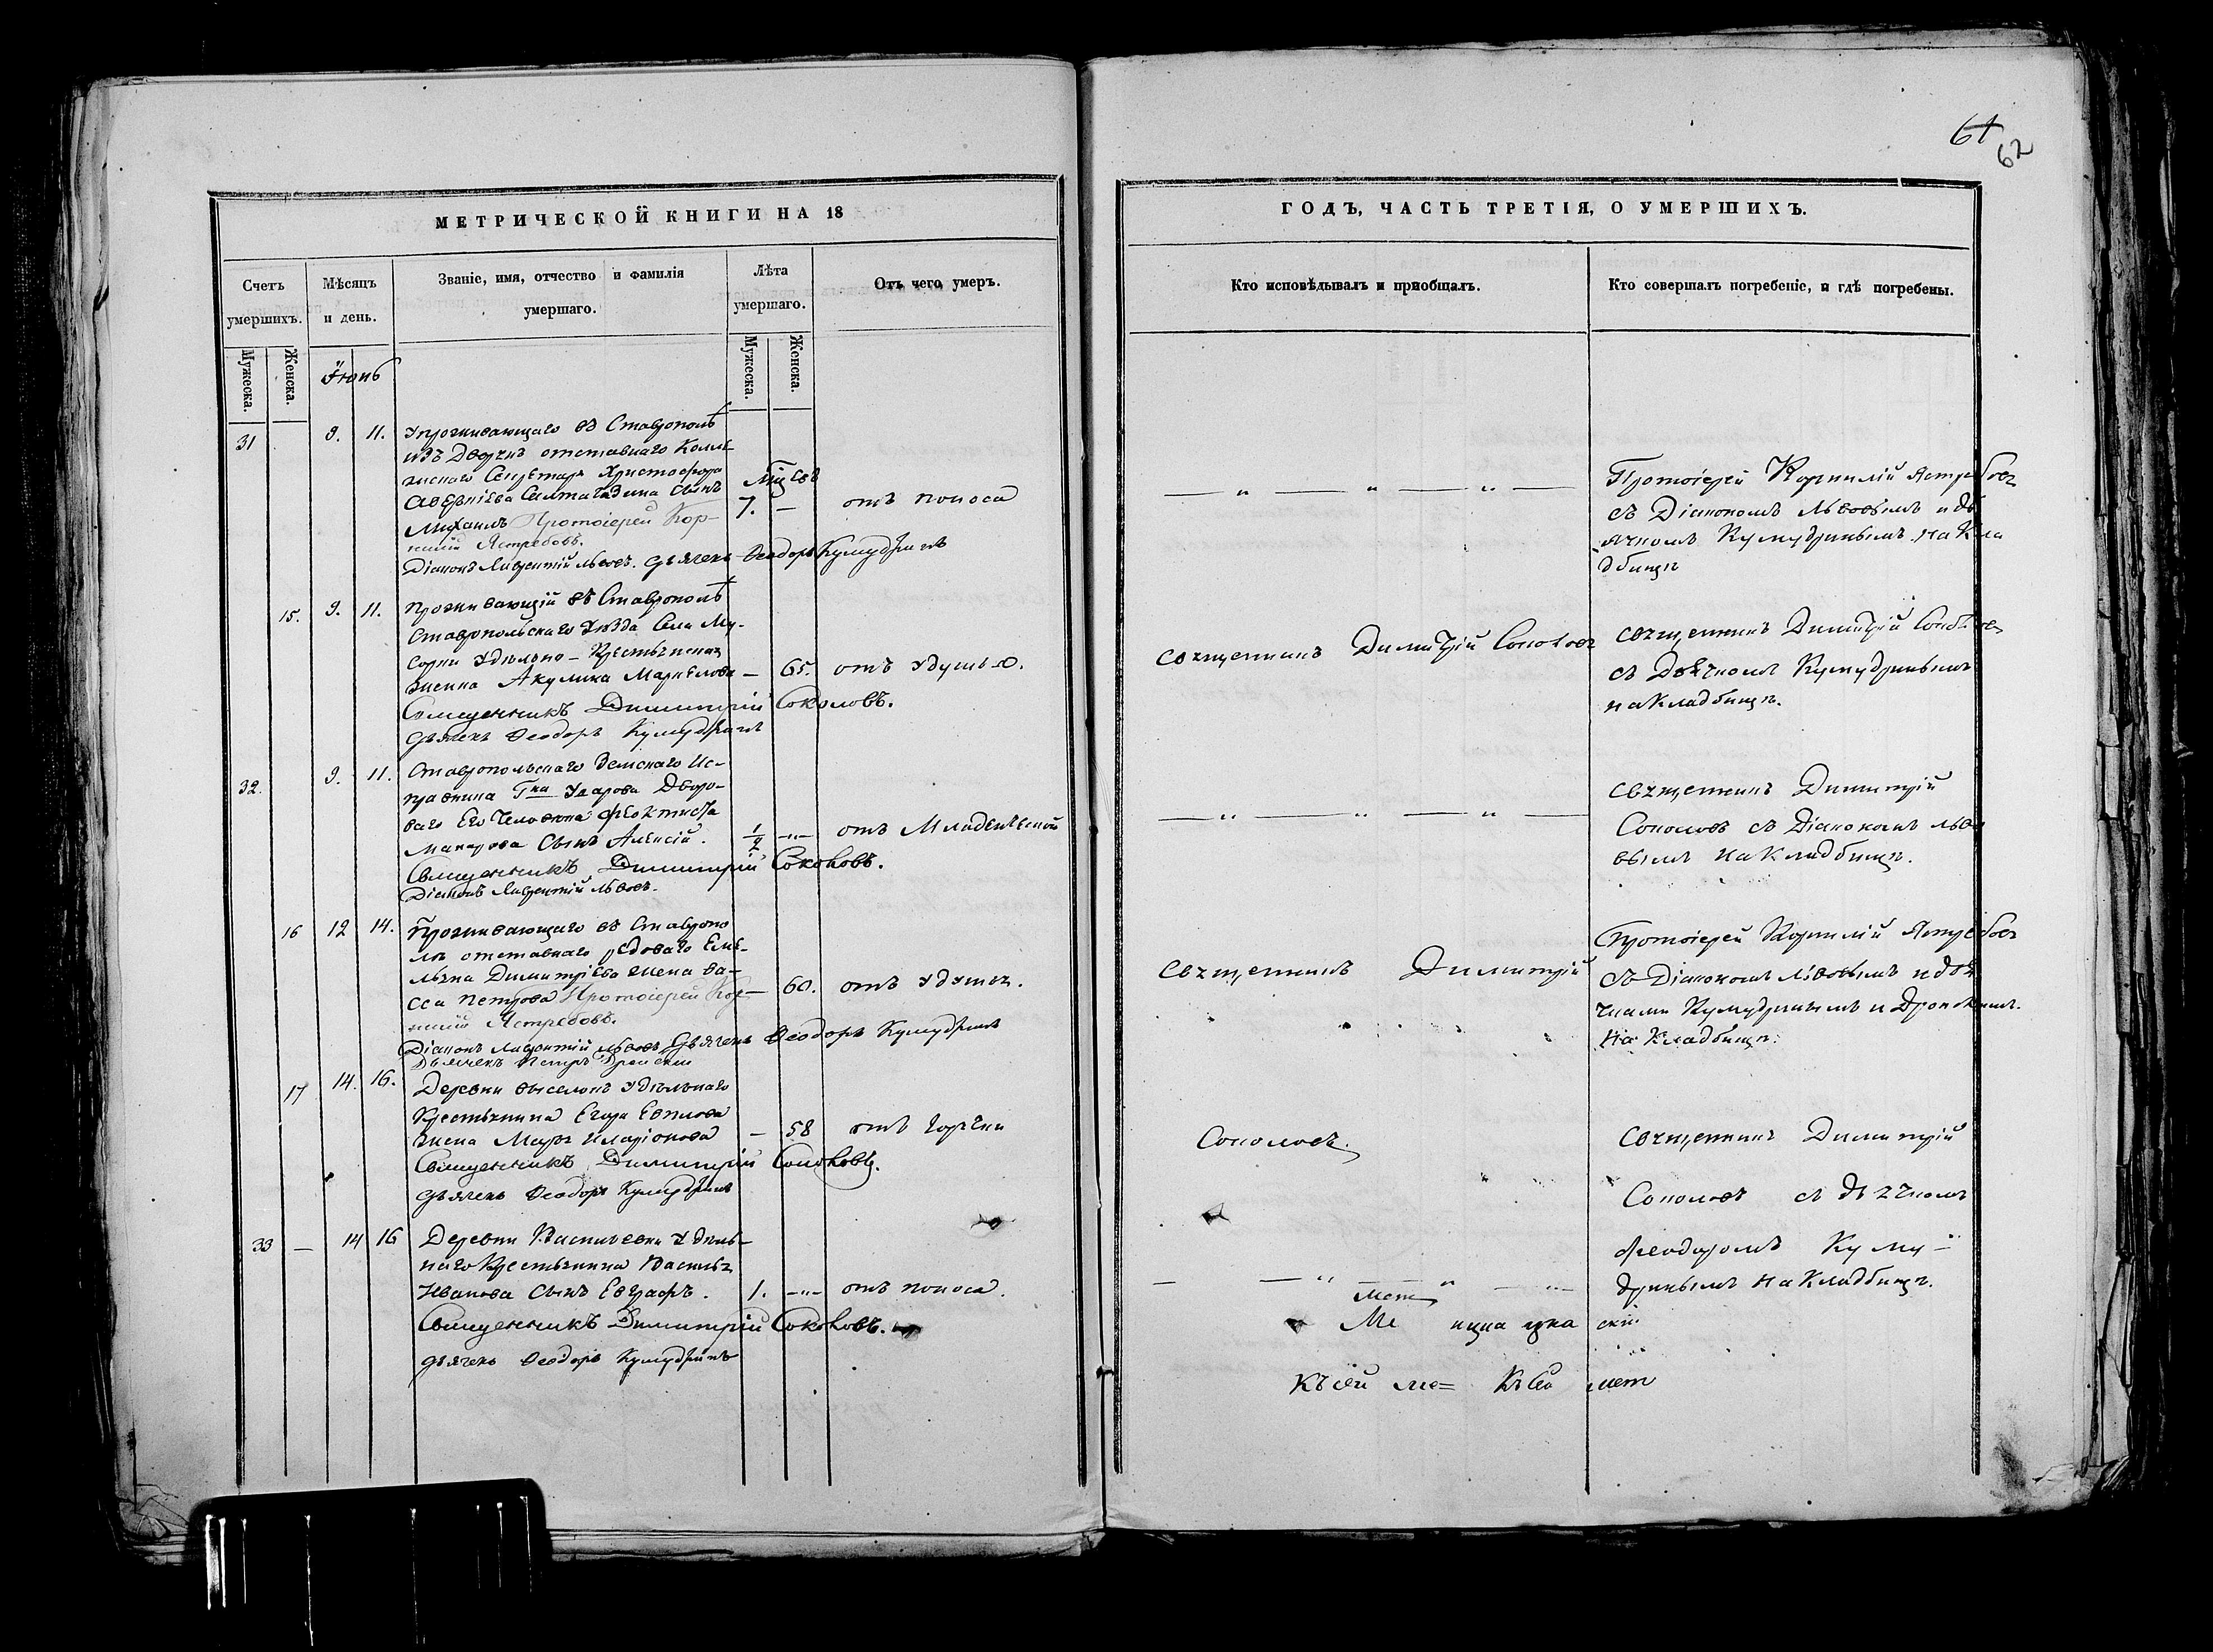 61
62
МЕТРИЧЕСКОЙ КНИГИ НА 18
ГОДЪ, ЧАСТЬ ТРЕТІЯ, О УМЕРШИХЪ.
Счетъ умершихъ.
Мѣсяцъ и день.
Званіе, имя, отчество и фамилія умершаго.
Лѣта умершаго.
Отъ чего умеръ.
Кто исповѣдывалъ и пріобщалъ.
Кто совершалъ погребеніе, и гдѣ погребены.
Мужеска.
Женска.
Мужеска.
Женска.
Іюнь
31 9. 11. Упроживающаго въ Ставрополѣ
изъ Дворянъ отставнаго Колле
жскаго Секретаря Христофора
сынъ
Михаилъ Протоіерей Кор-
нилій Ястребовъ.
Діаконъ Лаврентій Львовъ. Дьячекъ Ѳеодоръ Кумудринъ
7. — отъ поноса
Протоіерей Корнилій Ястребовъ
съ Діакономъ Львовымъ и дь
ячкомъ Кумудринымъ на Кла
дбищѣ
15. 9. 11. Проживающій въ Ставрополѣ
Ставропольскаго Уѣзда Села Му-
сорки Удѣльно-Крестьянская
жена Акулина Маркелова — 65. отъ удушья.
Священникъ Димитрій Соколовъ.
Дьячекъ Ѳеодоръ Кумудринъ
Священникъ Димитрій Соколовъ
Священникъ Димитрій Соколовъ
съ Дьячкомъ Кумудринымъ
на Кладбищѣ.
32. 9. 11. Ставропольскаго Земскаго Ис-
правника Гна Ударова Дворо-
ваго Его Человѣка Феоктиста
Макарова Сынъ Алексій. 1/2 отъ Младенческой
Священникъ Димитрій Соколовъ.
Діаконъ Лаврентій Львовъ.
Священникъ Димитрій
Соколовъ съ Діакономъ Льво
вымъ на Кладбищѣ.
16 12 14. Проживающаго въ Ставропо
лѣ отставнаго рядоваго Еме-
льяна Димитріева жена Ва-
сса Петрова Протоіерей Кор- — 60. отъ удушья.
нилій Ястребовъ.
Діаконъ Лаврентій Львовъ Дьячекъ Ѳеодоръ Кумудринъ
Дьячекъ Петръ
Священникъ Димитрій
Протоіерей Корнилій Ястребовъ
съ Діакономъ Львовымъ и дья
чками Кумудринымъ и
на Кладбищѣ.
17 14. 16. Деревни выселокъ Удѣльнаго
Крестьянина Егора Евплова
жена Марѳа Иларіонова — 58 отъ горячки
Священникъ Димитрій Соколовъ.
Дьячекъ Ѳеодоръ Кумудринъ
Соколовъ.
Священникъ Димитрій
Соколовъ съ дьячкомъ
33 — 14 16 Деревни Васильевки Удѣль-
наго Крестьянина Василья
Иванова Сынъ Евграфъ. 1. отъ поноса.
Священникъ Димитрій Соколовъ.
Дьячекъ Ѳеодоръ Кумудринъ
Феодоромъ Куму-
дринымъ на Кладбищѣ.
мет
Ме
Къ сей ме= Къ сей мет